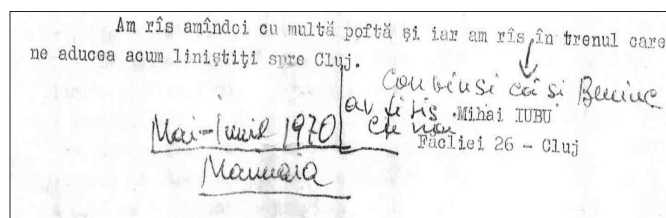 Am rîs amîndoi cu multă poftă și iar am rîs, în trenul care
ne aducea acum liniștiți spre Cluj.
Convinsi că si
ar fi ris
cu noi
Mihai IUBU
Făcliei 26 - Cluj
Mai-Iunie 1970
Mamaia